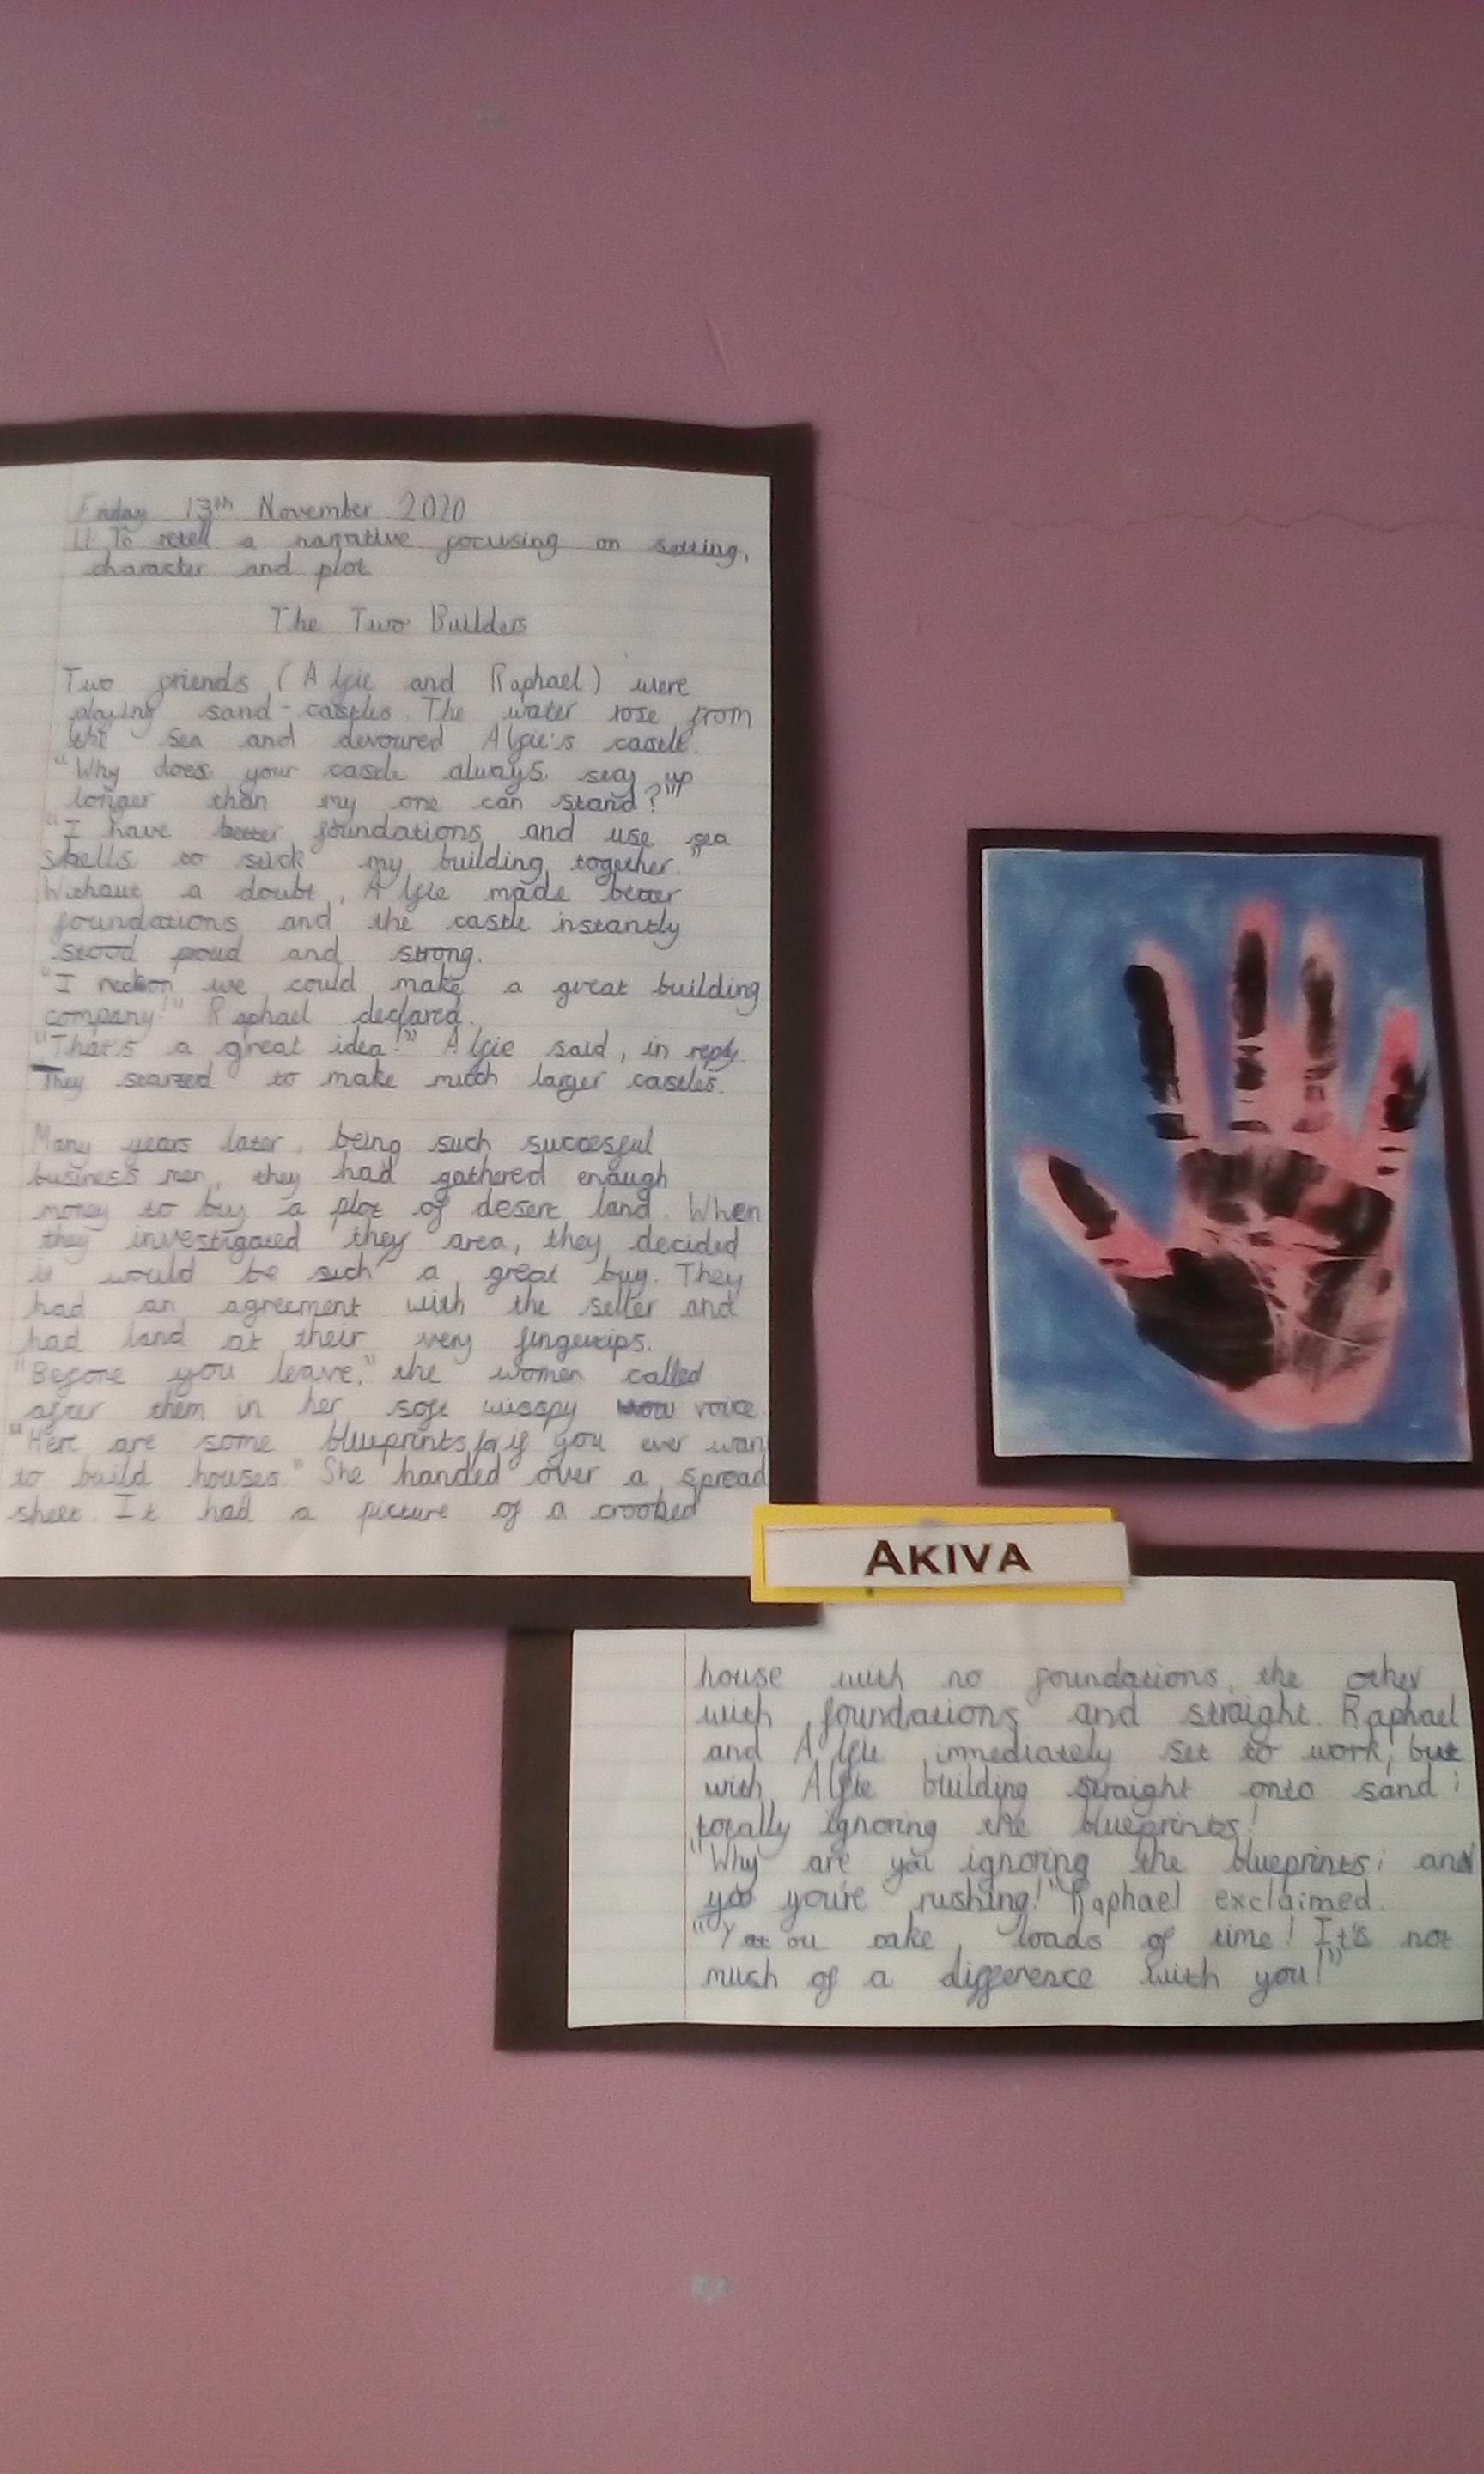 Friday 13th November 2020
LI: To retell a narrative focusing on setting,
character and plot
The Two Builders
Two friends (Algie and Raphael) were
playing sand-castles. The water rose from
the sea and devoured Algie's castle.
"Why does your castle always stay up
longer than my one can stand?"
"I have better foundations and use sea
shells to stick my building together."
Without a doubt, Algie made better
foundations and the castle instantly
stood proud and strong.
"I reckon we could make a great building
company!" Raphael declared.
"That's a great idea!" Algie said, in reply.
They started to make much larger castles.
Many years later, being such succesful
business men, they had gathered enough
money to buy a plot of desert land. When
they investigated they area, they decided
it would be such a great buy. They
had an agreement with the seller and
had land at their very fingertips.
"Before you leave," the women called
after them in her soft wisspy voice.
"Here are some blueprints if you ever wan
to build houses." She handed over a spread
sheet. It had a picture of a crooked
AKIVA
house with no foundations, the other
with foundations and straight. Raphael
and Algie immediately set to work, but
with Algie building straight onto sand;
totally ignoring the blueprints!
"Why are you ignoring the blueprints; and
you're rushing!" Raphael exclaimed.
"You take loads of time! It's not
much of a difference with you!"